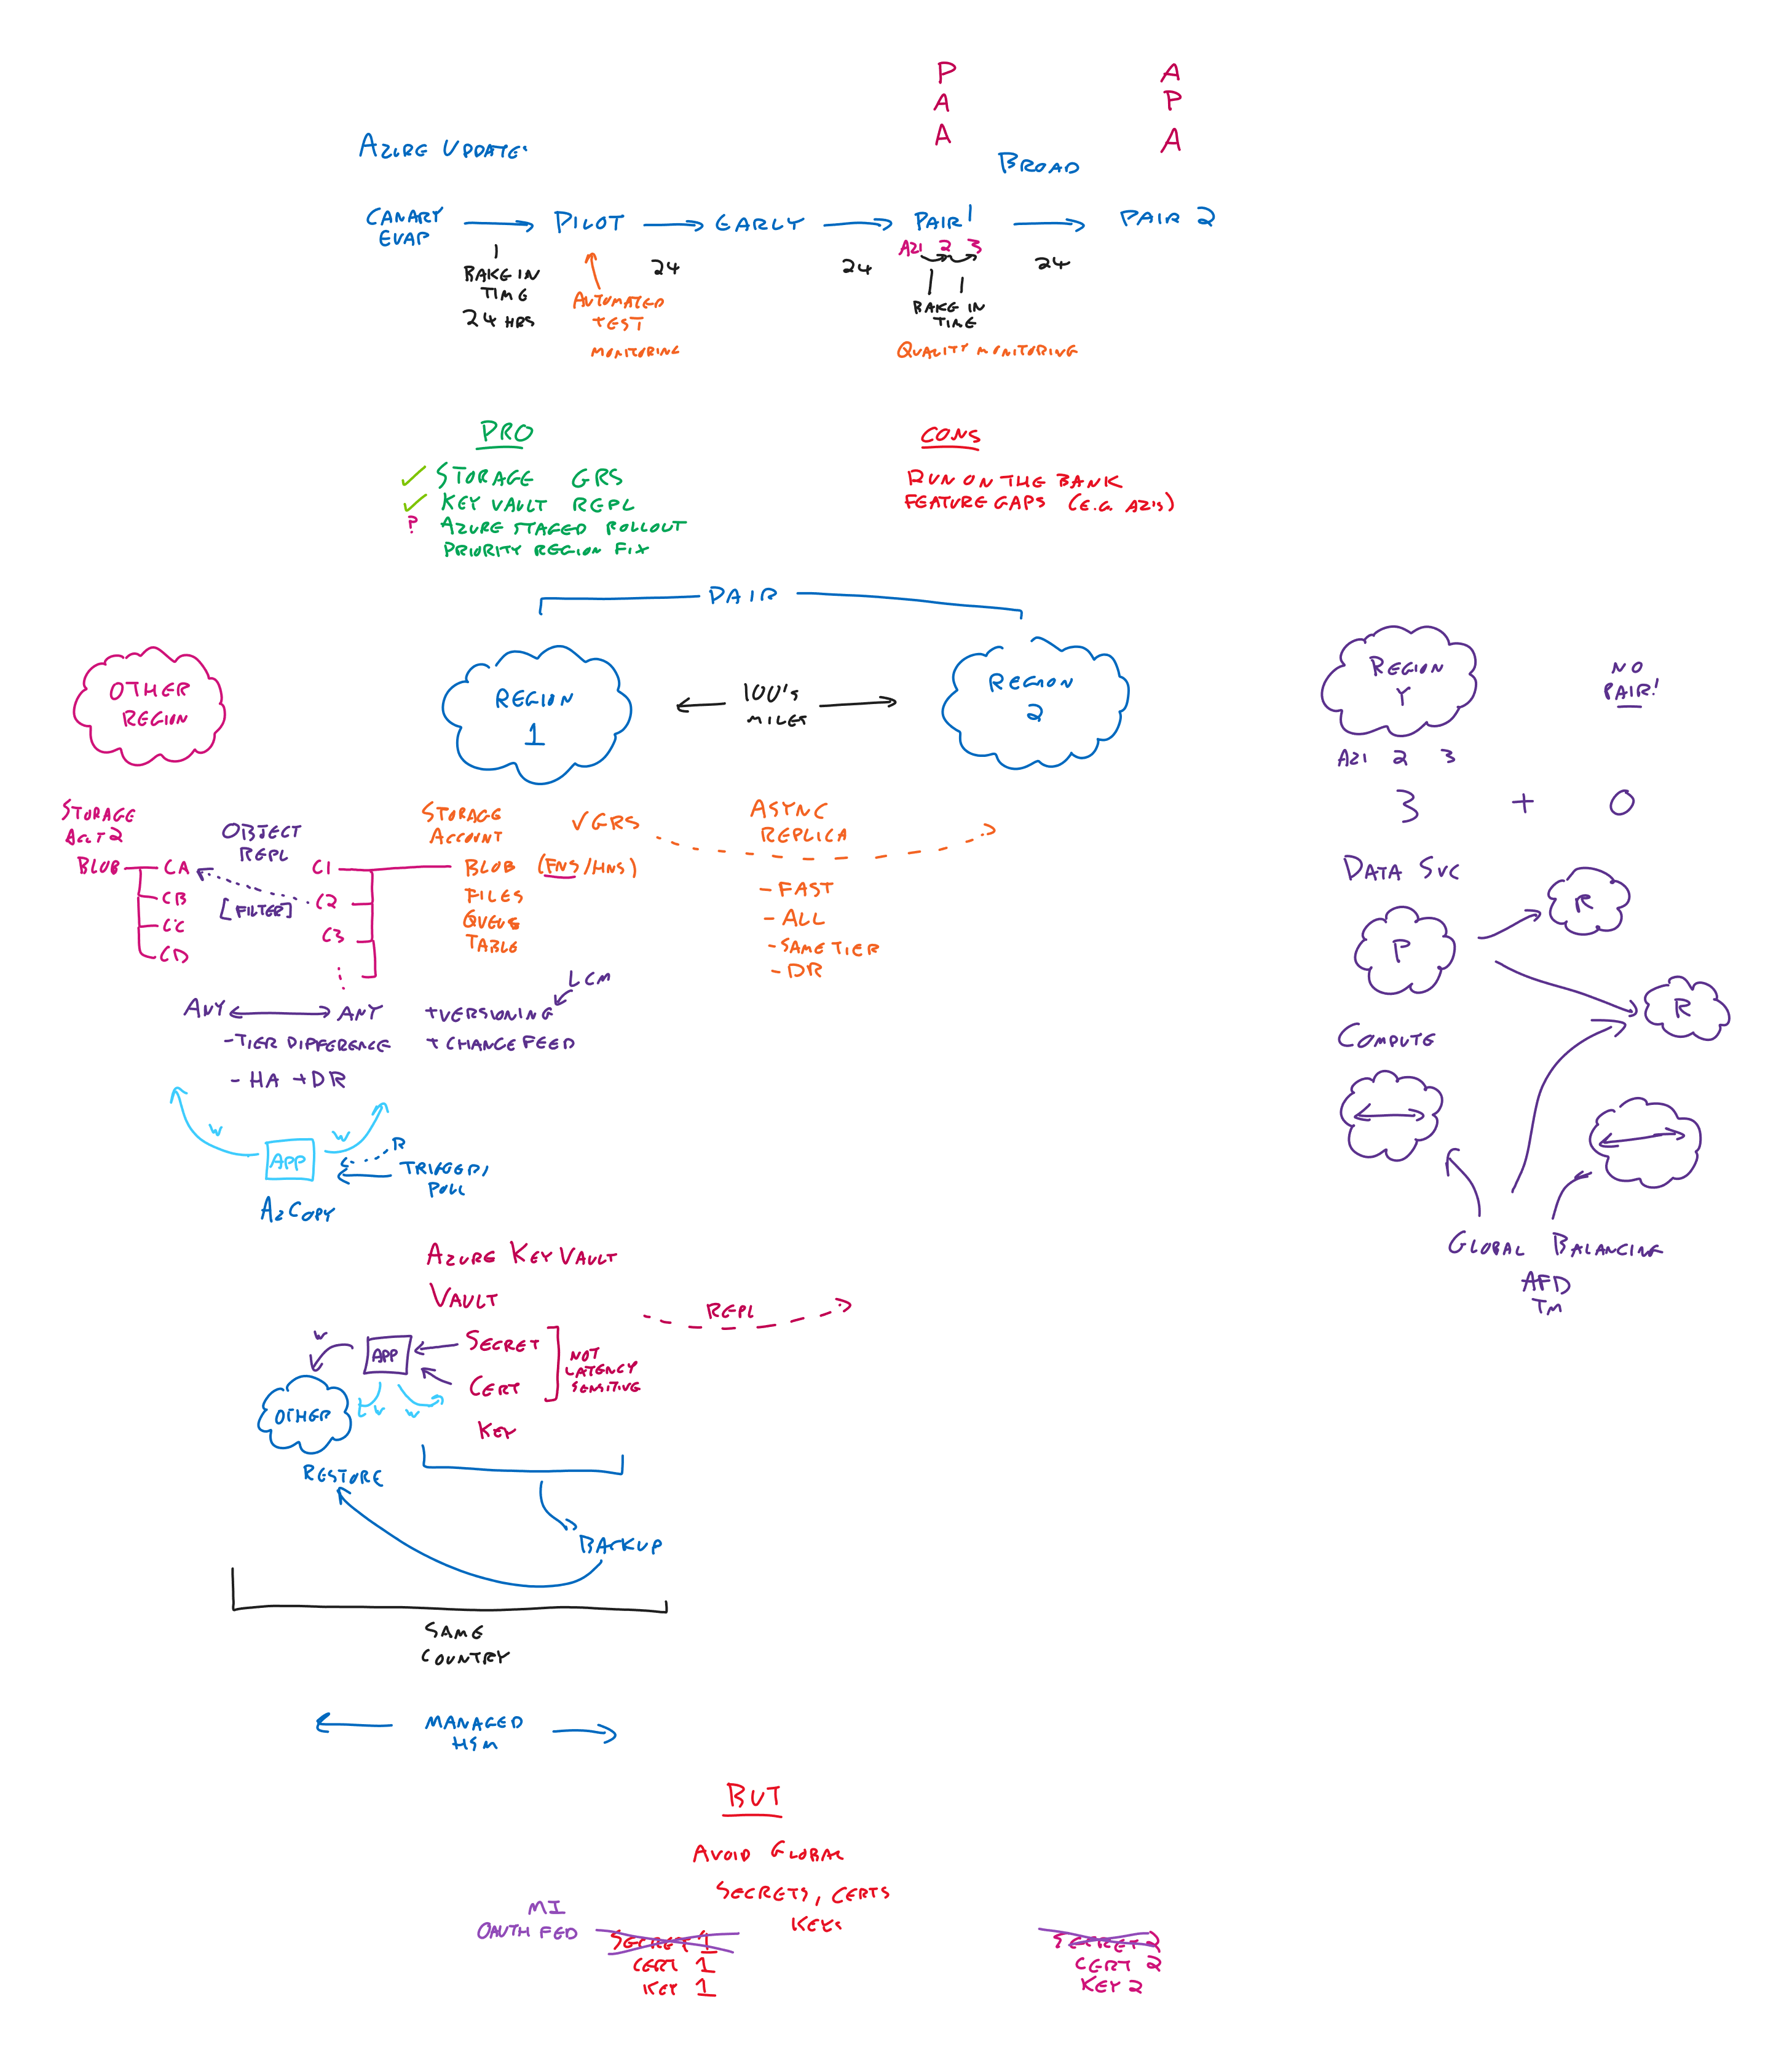 P
A
A
A
P
A
AZURE UPDATE:
BROAD
CANARY
EUAP
PILOT
EARLY
PAIR 1
PAIR 2
AZ1 2 3
BAKE IN
TIME
24 HRS
AUTOMATED
TEST
MONITORING
24
24
BAKE IN
TIME
24
QUALITY MONITORING
PRO
STORAGE GRS
KEY VAULT REPL
? AZURE STAGED ROLLOUT
PRIORITY REGION FIX
CONS
RUN ON THE BANK
FEATURE GAPS (E.G. AZ'S)
PAIR
OTHER
REGION
REGION
1
100'S
MILES
REGION
2
REGION
Y
NO
PAIR!
AZ1 2 3
3 + 0
STORAGE
ACCT 2
OBJECT
REPL
[FILTER]
BLOB
CA
CB
CC
CD
C1
C2
C3
STORAGE
ACCOUNT
√GRS
BLOB (FNS/HNS)
FILES
QUEUE
TABLE
ASYNC
REPLICA
- FAST
- ALL
- SAME TIER
- DR
LCM
ANY
ANY
+VERSIONING
- TIER DIFFERENCE
+ CHANGE FEED
- HA + DR
W
W
APP
R
TRIGGER/
POLL
AZCOPY
DATA SVC
P
R
R
COMPUTE
GLOBAL BALANCING
AFD
TM
AZURE KEY VAULT
VAULT
REPL
W
APP
SECRET
CERT
KEY
NOT
LATENCY
SENSITIVE
W
W
OTHER
RESTORE
BACKUP
SAME
COUNTRY
MANAGED
HSM
BUT
AVOID GLOBAL
SECRETS, CERTS
KEYS
MI
OAUTH FED
SECRET 1
CERT 1
KEY 1
SECRET 2
CERT 2
KEY 2